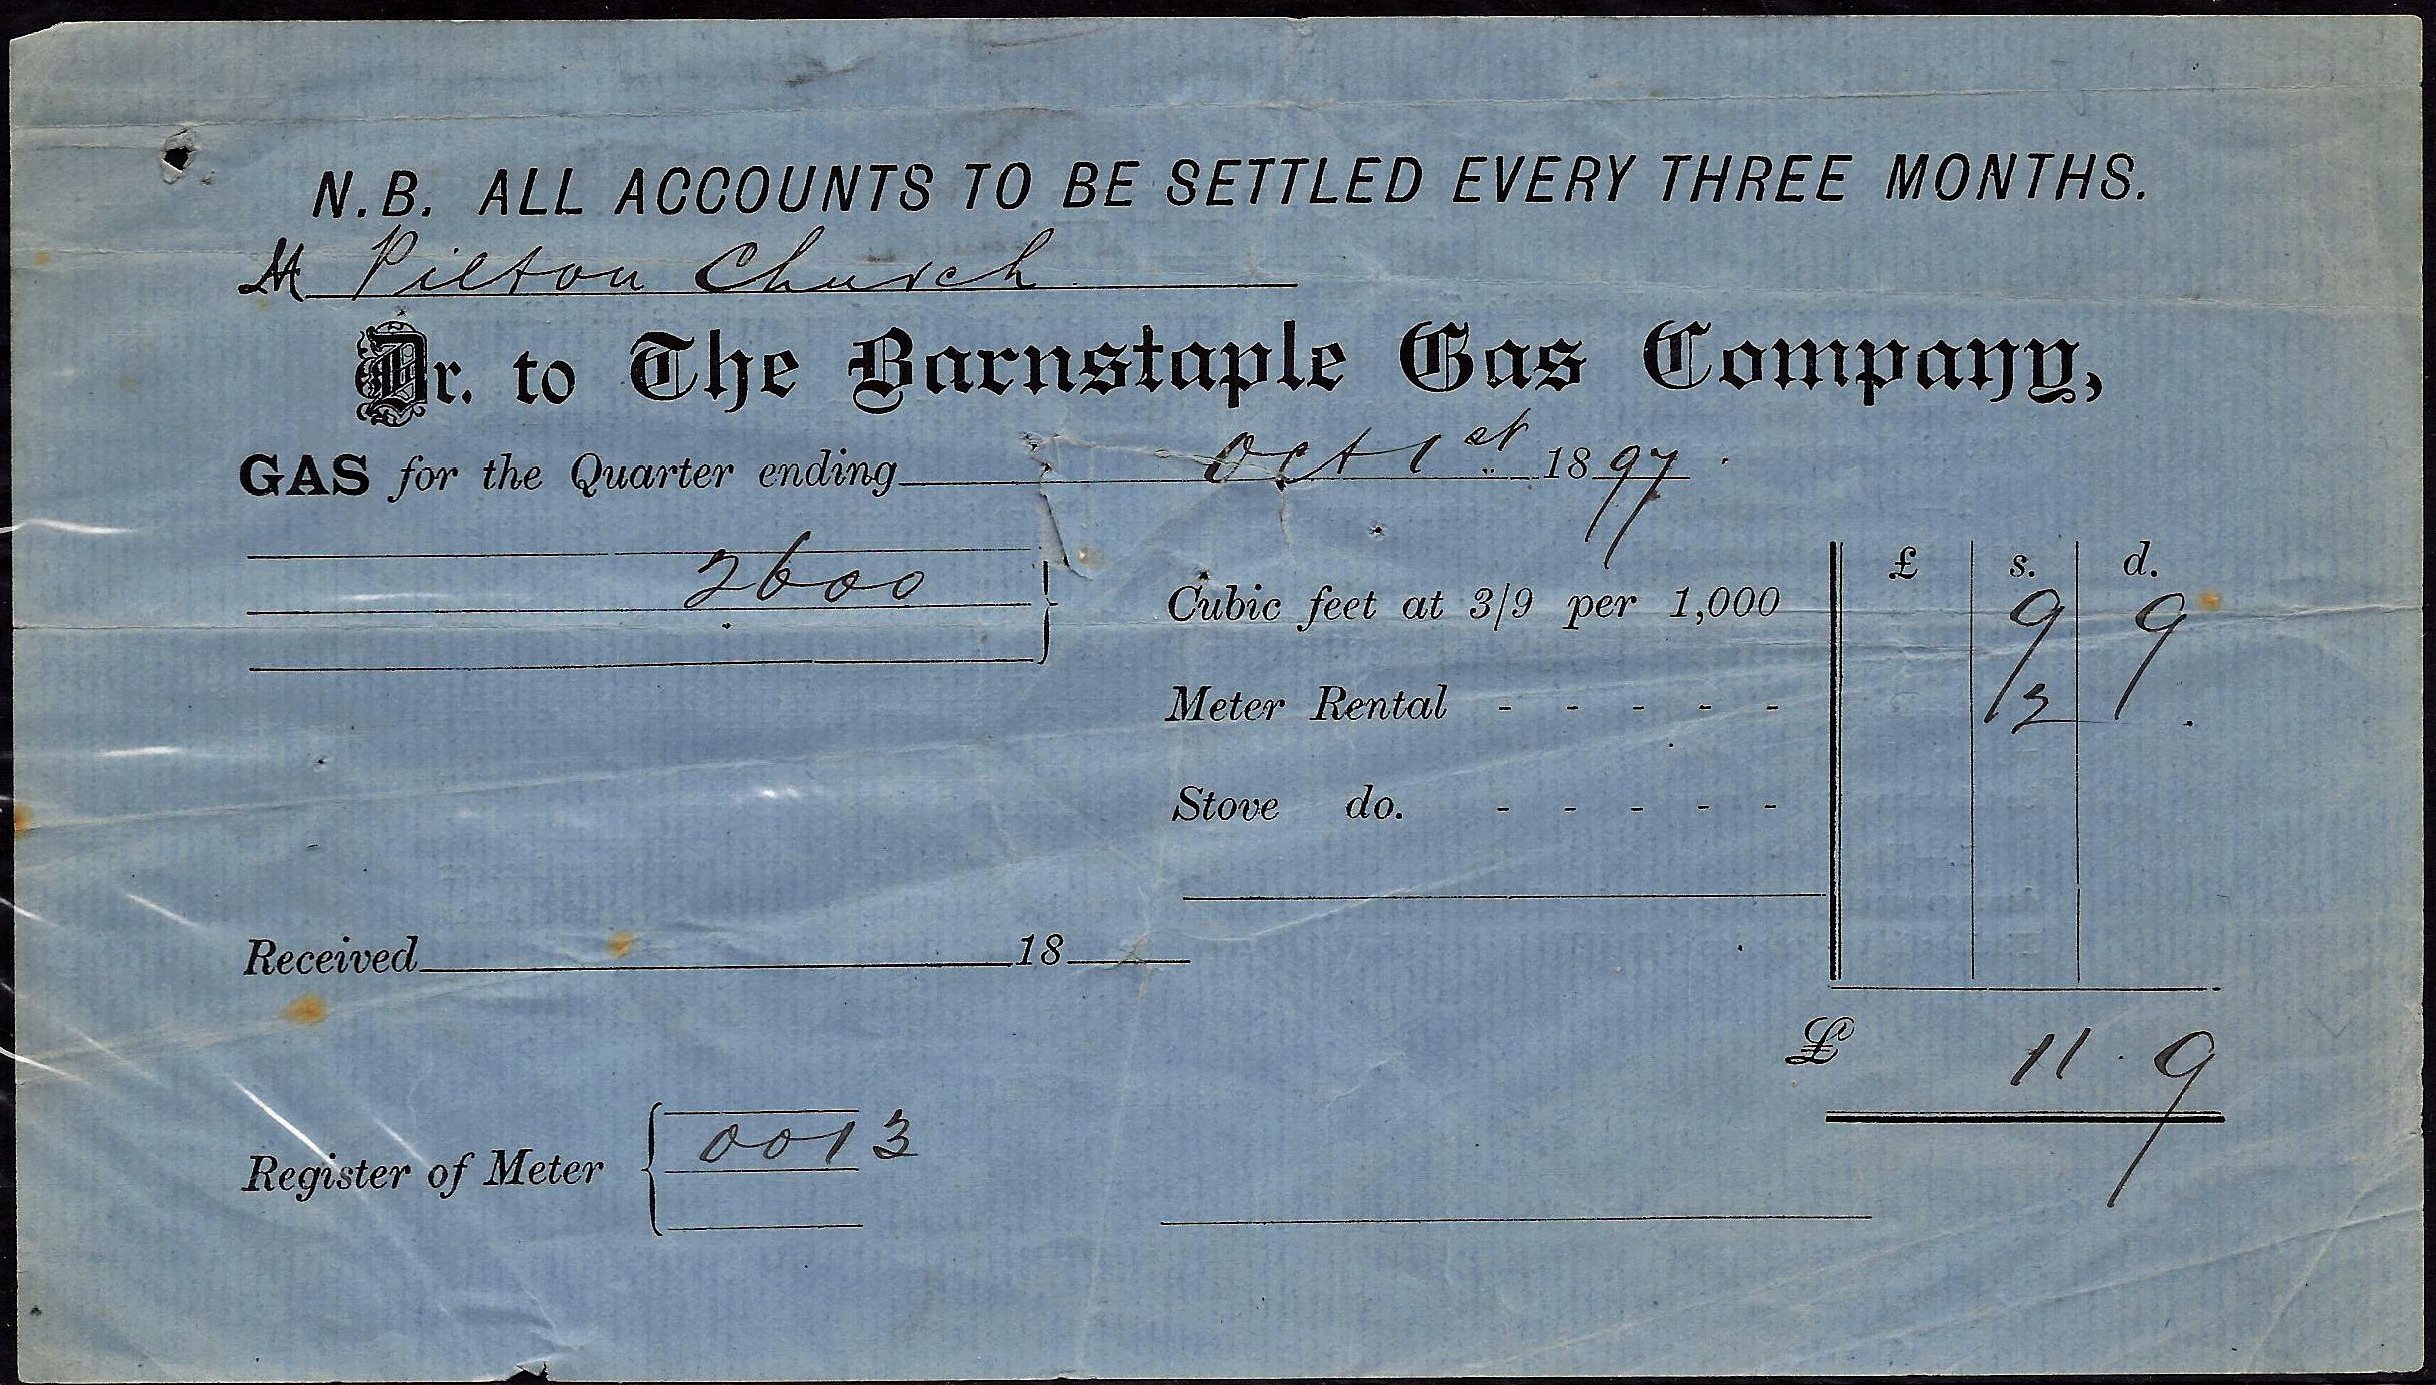 N.B. ALL ACCOUNTS TO BE SETTLED EVERY THREE MONTHS.
M Pilton Church
Dr. to The Barnstaple Gas Company,
GAS for the Quarter ending Oct 1st 1897
£ s. d.
2600 Cubic feet at 3/9 per 1,000 9 9
Meter Rental - - - - - 2
Stove do. - - - - -
Received 18
£ 11 . 9
Register of Meter 0013